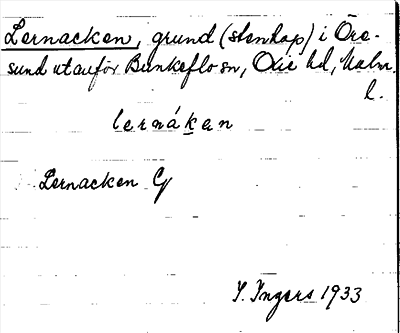 Lernacken, grund (stenhop) i Öre-
sund utanför Bunkeflo sn, Oxie hd, Malm.
l.
lernáken
Lernacken
I. Ingers 1933